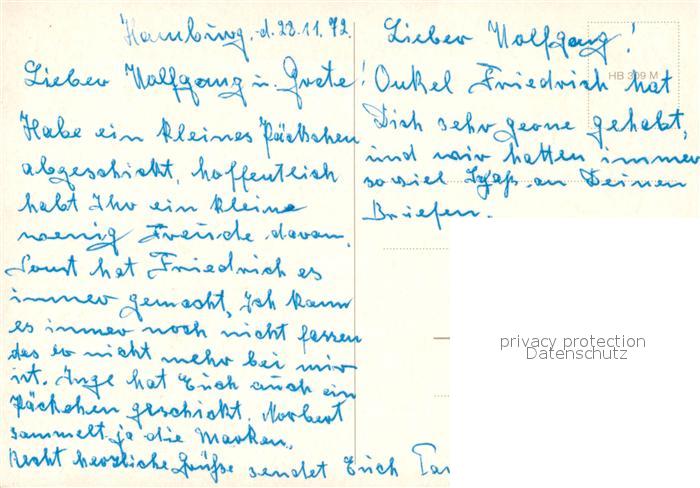 Hamburg, d. 23.11.72.
Lieber Wolfgang u. Grete!
Habe ein kleines Päckchen
abgeschickt, hoffentlich
habt Ihr ein kleine
wenig Freude davon,
Sonst hat Friedrich es
immer gemacht, Ich kann
es immer noch nicht fassen
das er nicht mehr bei mir
ist. Inge hat Euch auch ein
Päckchen geschickt. Norbert
sammelt ja die Marken.
Recht herzliche Grüße sendet Euch
Lieber Wolfgang!
Onkel Friedrich hat
Dich sehr gerne gehabt,
und wir hatten immer
soviel Spaß an Deinen
Briefen.
HB 309 M
privacy protection
Datenschutz